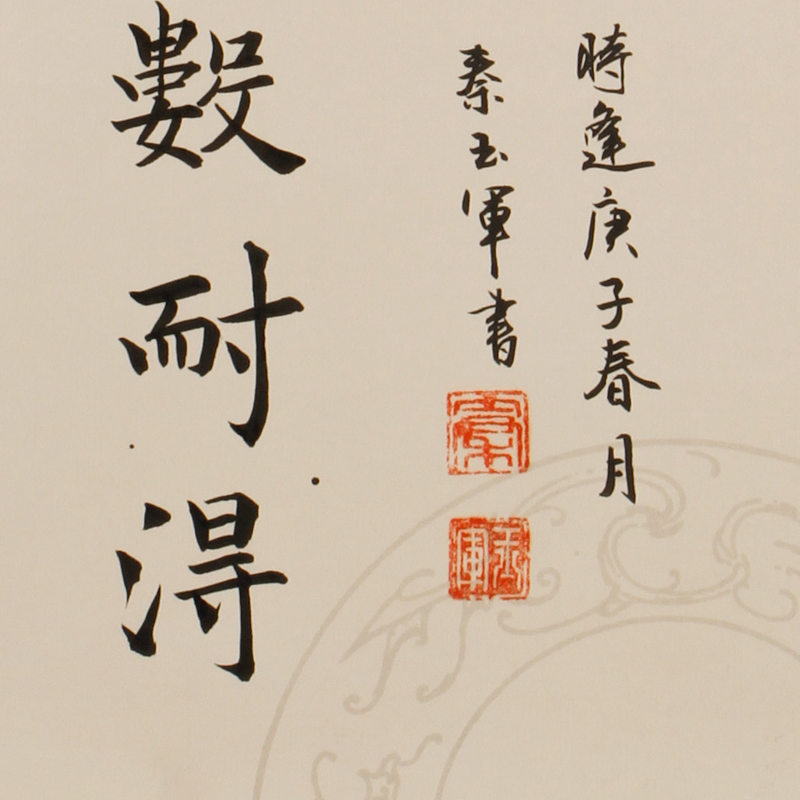 時逢庚子春月
秦玉軍書
秦
玉軍
數耐淂